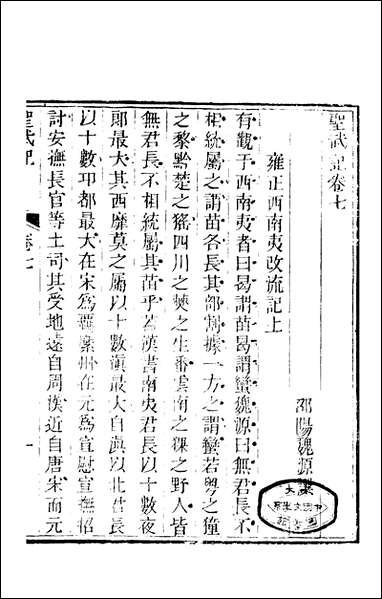 聖武記卷七
邵陽魏源譔
雍正西南夷改流記上
有觀于西南夷者曰曷謂苗曷謂蠻魏源曰無君長不
相統屬之謂苗各長其部割據一方之謂蠻若粤之獞
之黎黔楚之猺四川之僰之生番雲南之猓之野人皆
無君長不相統屬其苗乎若漢書南夷君長以十數夜
郎最大其西靡莫之屬以十數滇最大自滇以北君長
以十數卭都最大在宋爲羈縻州在元爲宣慰宣撫招
討安撫長官等土司其受地遠自周漢近自唐宋而元
聖武記
卷七
一